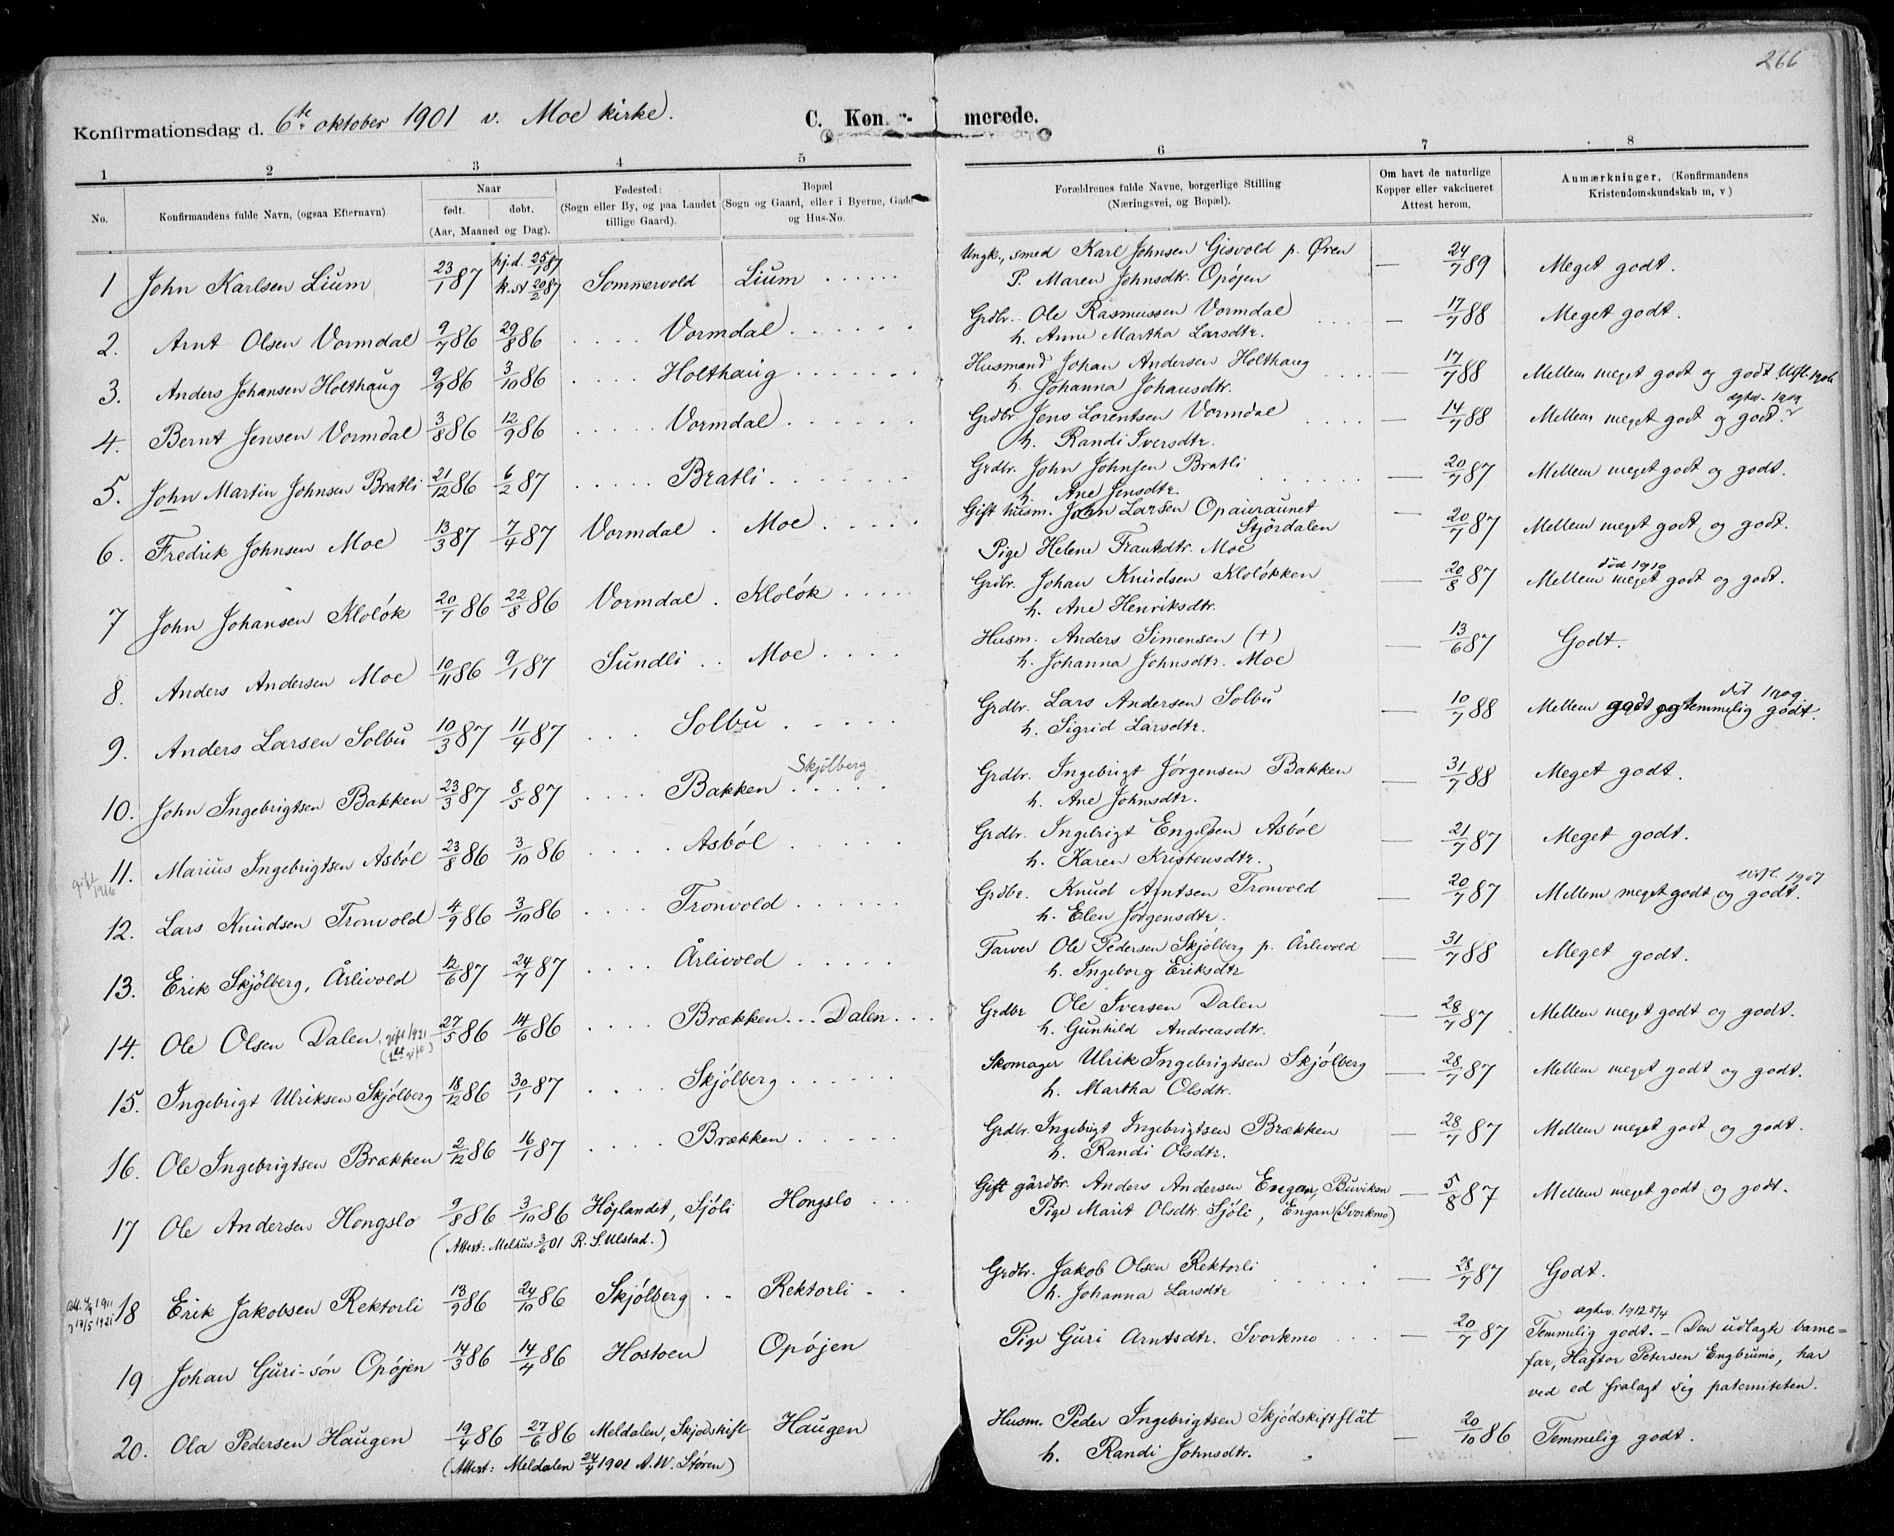 266
Konfirmationsdag d. 6te oktober 1901 v. Moe kirke. C. Kon merede.
1 2 3 4 5 6 7 8
No. Konfirmandens fulde Navn, (ogsaa Efternavn) Naar født. døbt. (Aar, Maaned og Dag). Fødested: (Sogn eller By, og paa Landet tillige Gaard). Bopæl (Sogn og Gaard, eller i Byerne, Gade og Hus-No. Forældrenes fulde Navne, borgerlige Stilling (Næringsvei, og Bopæl). Om havt de naturlige Kopper eller vakcineret Attest herom. Anmærkninger. (Konfirmandens Kristendomskundskab m, v)
1 John Karlsen Lium 23/1 87 hj.d. 25/1 87 k. st 20/2 87 Sommervold Lium Ungk., smed Karl Johnsen Gisvold p. Øren — 24/7 89 Meget godt.
P. Maren Johnsdtr. Opøjen
2. Arnt Olsen Vormdal 9/7 86 29/8 86 Vormdal Grdbr. Ole Rasmussen Vormdal — 17/7 88 Meget godt.
h. Anne Martha Larsdtr.
3. Anders Johansen Holthaug 9/9 86 3/10 86 Holthaug Husmand Johan Andersen Holthaug — 17/7 88 Mellem meget godt og godt. Utfl. 1906
h. Johanna Johansdtr.
4. Bernt Jensen Vormdal 3/8 86 12/9 86 Vormdal Grdbr. Jens Lorentsen Vormdal — 14/7 88 Mellem meget godt og godt.
h. Randi Iversdtr.
5. John Martin Johnsen Bratli 21/12 86 6/2 87 Bratli Grdbr. John Johnsen Bratli 20/7 87 Mellem meget godt og godt.
h. Ane Jensdtr.
6. Fredrik Johnsen Moe 13/3 87 7/4 87 Vormdal Moe Gift husm. John Larsen Opauraunet Stjørdalen — 20/7 87 Mellem meget godt og godt.
Pige Helene Frantsdtr. Moe
7 John Johansen Kloløk 20/7 86 22/8 86 Vormdal Kloløk Grdbr. Johan Knudsen Kloløkken — 20/8 87 Mellem meget godt og godt. død 1910
h. Ane Henriksdtr.
8. Anders Andersen Moe 10/11 86 9/1 87 Sundli Moe Husm. Anders Simensen (+) — 13/6 87 Godt.
h. Johanna Johnsdtr. Moe
9. Anders Larsen Solbu 10/3 87 11/4 87 Solbu Grdbr. Lars Andersen Solbu — 10/7 88 Mellem godt og temmelig godt.
h. Sigrid Larsdtr.
10. John Ingebrigtsen Bakken 23/3 87 8/5 87 Bakken Skjølberg Grdbr. Ingebrigt Jørgensen Bakken — 31/7 88 Meget godt.
h. Ane Johnsdtr.
11. Marius Ingebrigtsen Asbøl 23/8 86 3/10 86 Asbøl Grdbr. Ingebrigt Engelsen Asbøl — 21/7 87 Meget godt.
h. Karen Kristensdtr.
gift 1916
12. Lars Knudsen Tronvold 4/9 86 3/10 86 Tronvold Grdbr. Knud Arntsen Tronvold — 20/7 87 Mellem meget godt og godt. utfl. 1907
h. Elen Jørgensdtr.
13. Erik Skjølberg, Årlivold 12/6 87 24/7 87 Årlivold Farver Ole Pedersen Skjølberg p. Årlivold — 31/7 88 Meget godt.
h. Ingeborg Eriksdtr
14. Ole Olsen Dalen gift 1921 27/5 86 14/6 86 Brækken Dalen Grdbr Ole Iversen Dalen — 28/7 87 Mellem meget godt og godt.
h. Gunhild Andreasdtr.
15. Ingebrigt Ulriksen Skjølberg 18/12 86 30/1 87 Skjølberg Skomager Ulrik Ingebrigtsen Skjølberg — 28/7 87 Mellem meget godt og godt.
h. Martha Olsdtr.
16. Ole Ingebrigtsen Brækken 2/12 86 16/1 87 Brækken Grdbr. Ingebrigt Ingebrigtsen Brækken — 28/7 87 Mellem meget godt og godt.
h. Randi Olsdtr.
17 Ole Andersen Hongslo 9/8 86 3/10 86 Høylandet, Sjøli Hongslo Gift gårdbr. Anders Andersen Engan, Buviken — 5/8 87 Mellem meget godt og godt.
(Attest: Melhus 3/6 01 R. S. Ulstad.) Pige Marit Olsdtr. Sjøli, Engan (Svorkmo)
18 Erik Jakobsen Rektorli 13/9 86 24/10 86 Skjølberg Rektorli Grdbr. Jakob Olsen Rektorli — 28/7 87 Godt.
h. Johanna Larsdtr
19 Johan Guri-søn Opøjen 14/3 86 14/4 86 Hostoen Opøjen Pige Guri Arntsdtr. Svorkmo — 20/7 87 Temmelig godt. — Den udlagte barne=
far, Haftor Petersen Engbrumo, har
ved ed fralagt sig paterniteten.
20. Ola Pedersen Haugen 19/4 86 27/6 86 Meldalen, Skjødskift Haugen Husm. Peder Ingebrigtsen Skjødskiftflåt — 20/10 86 Temmelig godt.
(Attest: Meldalen 24/4 1901 A. W. Støren) h. Randi Johnsdtr.